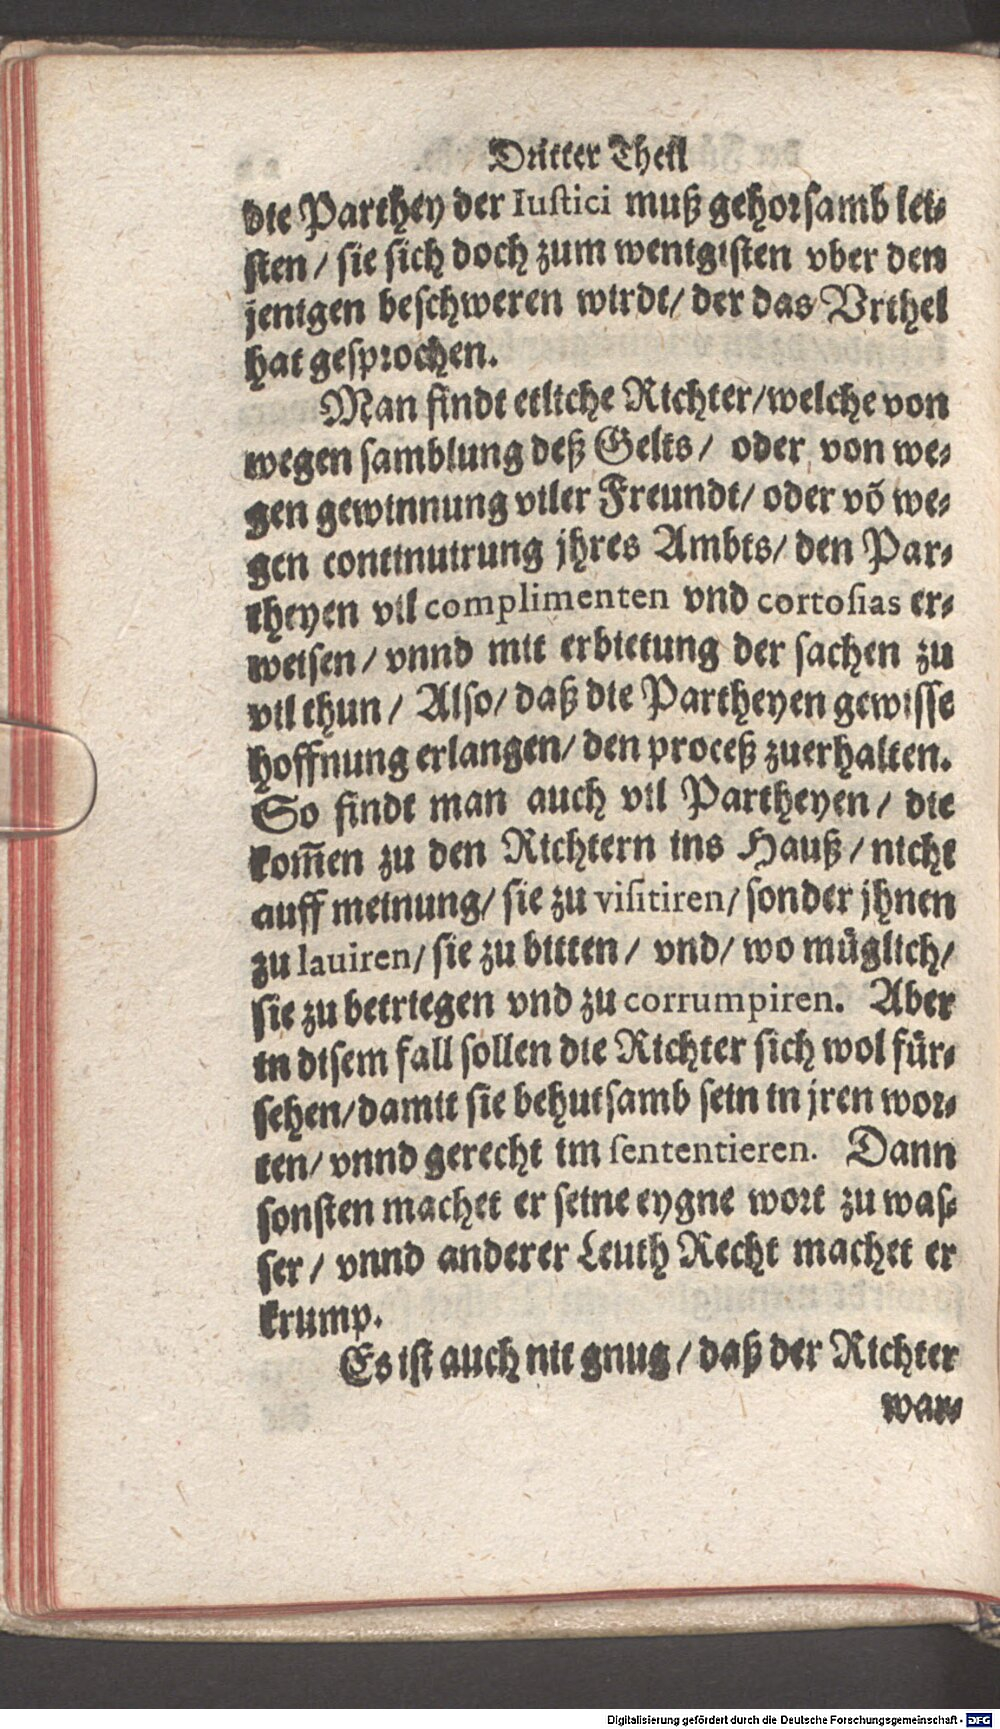 Dritter Theil
die Parthey der Iuſtici muß gehorſamb lei⸗
ſten / ſie ſich doch zum wenigiſten vber den
jenigen beſchweren wirdt/ der das Vrthel
hat geſprochen.
Man findt etliche Richter/welche von
wegen ſamblung deß Gelts / oder von we⸗
gen gewinnung viler Freundt/ oder võ we⸗
gen continuirung jhres Ambts/ den Par⸗
theyen vil complimenten vnd cortoſias er⸗
weiſen / vnnd mit erbietung der ſachen zu
vil thun / Alſo/ daß die Partheyen gewiſſe
hoffnung erlangen/ den proceß zuerhalten.
So findt man auch vil Partheyen / die
kom̃en zu den Richtern ins Hauß / nicht
auff meinung/ ſie zu viſitiren/ ſonder jhnen
zu lauiren/ ſie zu bitten / vnd/ wo müglich/
ſie zu betriegen vnd zu corrumpiren. Aber
in diſem fall ſollen die Richter ſich wol für⸗
ſehen/damit ſie behutſamb ſein in jren wor⸗
ten/ vnnd gerecht im ſententieren. Dann
ſonſten machet er ſeine eygne wort zu waſ⸗
ſer / vnnd anderer Leuth Recht machet er
krump.
Es iſt auch nit gnug / daß der Richter
war⸗
Digitalisierung gefördert durch die Deutsche Forschungsgemeinschaft - DFG